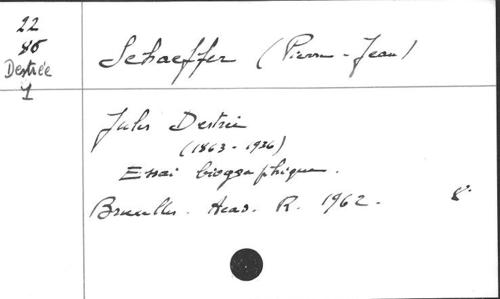 22
86
Destrée
1
Schaeffer (Pierre-Jean)
Jules Destrée
(1863-1936)
Essai biographique.
Bruxelles. Acad. R. 1962. 8°